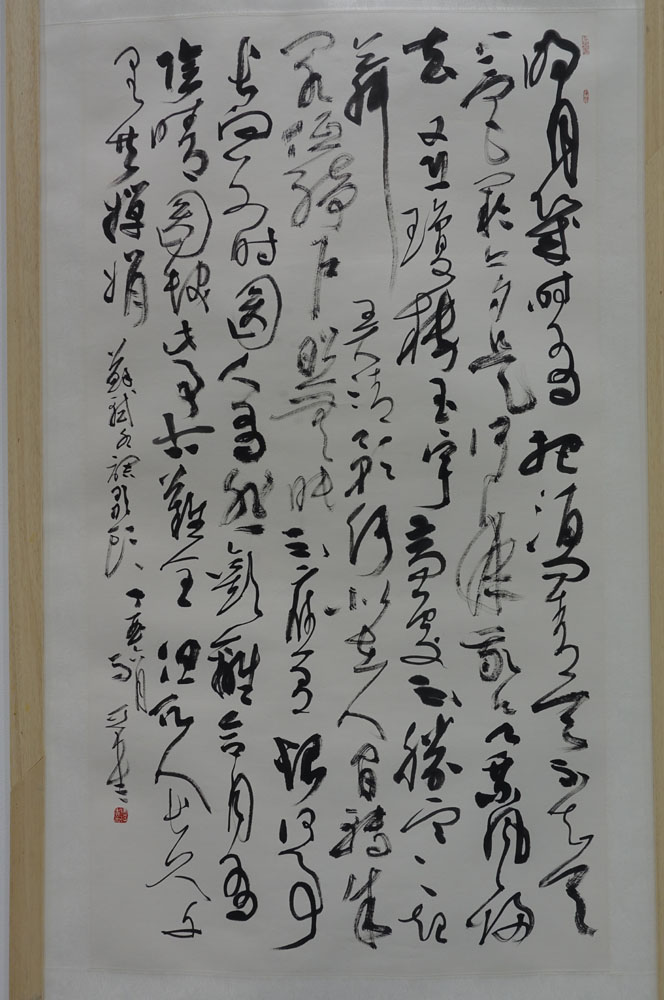 明月幾時有把酒問青天不知天
上宮闕今夕是何年我欲乘風歸
去又恐瓊樓玉宇高處不勝寒起
舞弄清影何似在人間轉朱
閣低綺戶照無眠不應有恨何事
長向別時圓人有悲歡離合月有
陰晴圓缺此事古難全但願人長久千
里共嬋娟
蘇軾水調歌頭丁亥